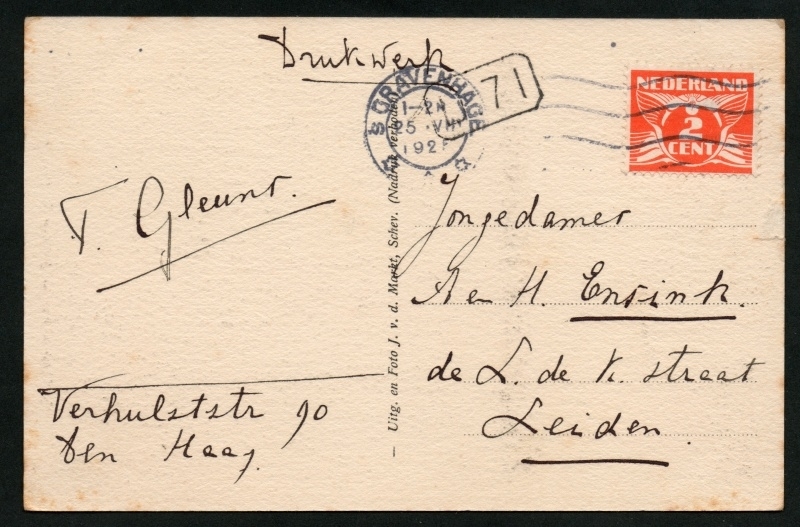 Drukwerk
'S GRAVENHAGE
1-2N
25 VIII
192
71
NEDERLAND
2
CENT
T. Gleuns.
Verhulststr 90
Den Haag.
— Uitg. en Foto J. v. d. Markt, Schev. (Nadruk verboden
Jongedames
A en H. Ensink.
de L. de K. straat
Leiden.